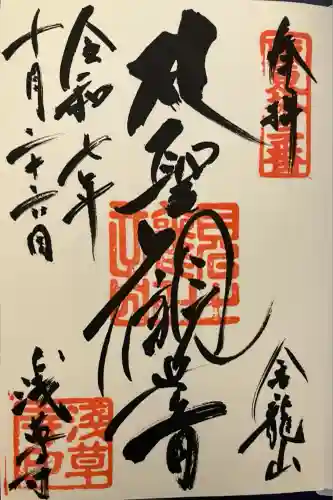 奉拝
金龍山
聖観世音
令和七年
十月二十六日
浅草寺
浅草